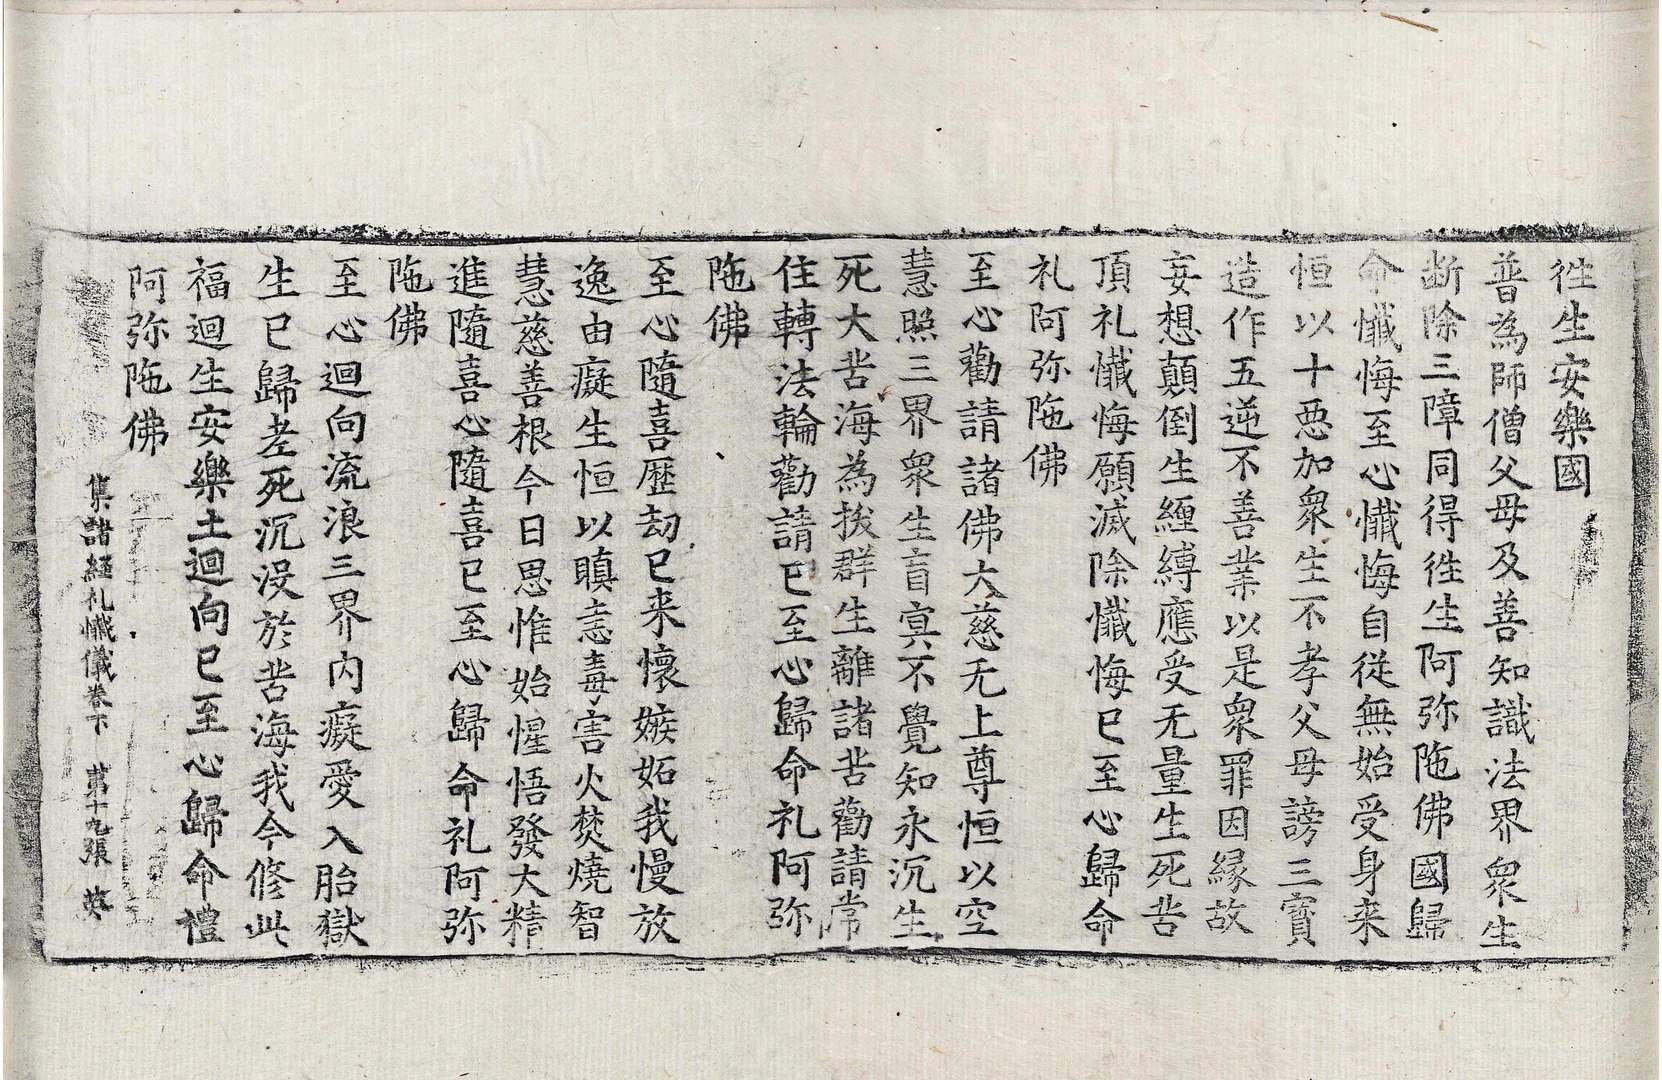 徃生安樂國
普為師僧父母及善知識法界衆生
断除三障同得徃生阿弥陁佛國歸
命懺悔至心懺悔自從無始受身来
恒以十惡加衆生不孝父母謗三寶
造作五逆不善業以是衆罪因縁故
妄想顛倒生纒縛應受无量生死苦
頂礼懺悔願滅除懺悔已至心歸命
礼阿弥陁佛
至心勸請諸佛大慈无上尊恒以空
慧照三界衆生盲冥不覺知永沉生
死大苦海為拔群生離諸苦勸請常
住轉法輪勸請已至心歸命礼阿弥
陁佛
至心隨喜歷刼已来懷嫉妬我慢放
逸由癡生恒以瞋恚毒害火焚燒智
慧慈善根今日思惟始惺悟發大精
進隨喜心隨喜已至心歸命礼阿弥
陁佛
至心迴向流浪三界內癡愛入胎獄
生已歸老死沉没於苦海我今修此
福迴生安樂土迴向已至心歸命禮
阿弥陁佛
集諸經礼懺儀卷下 苐十九張 英